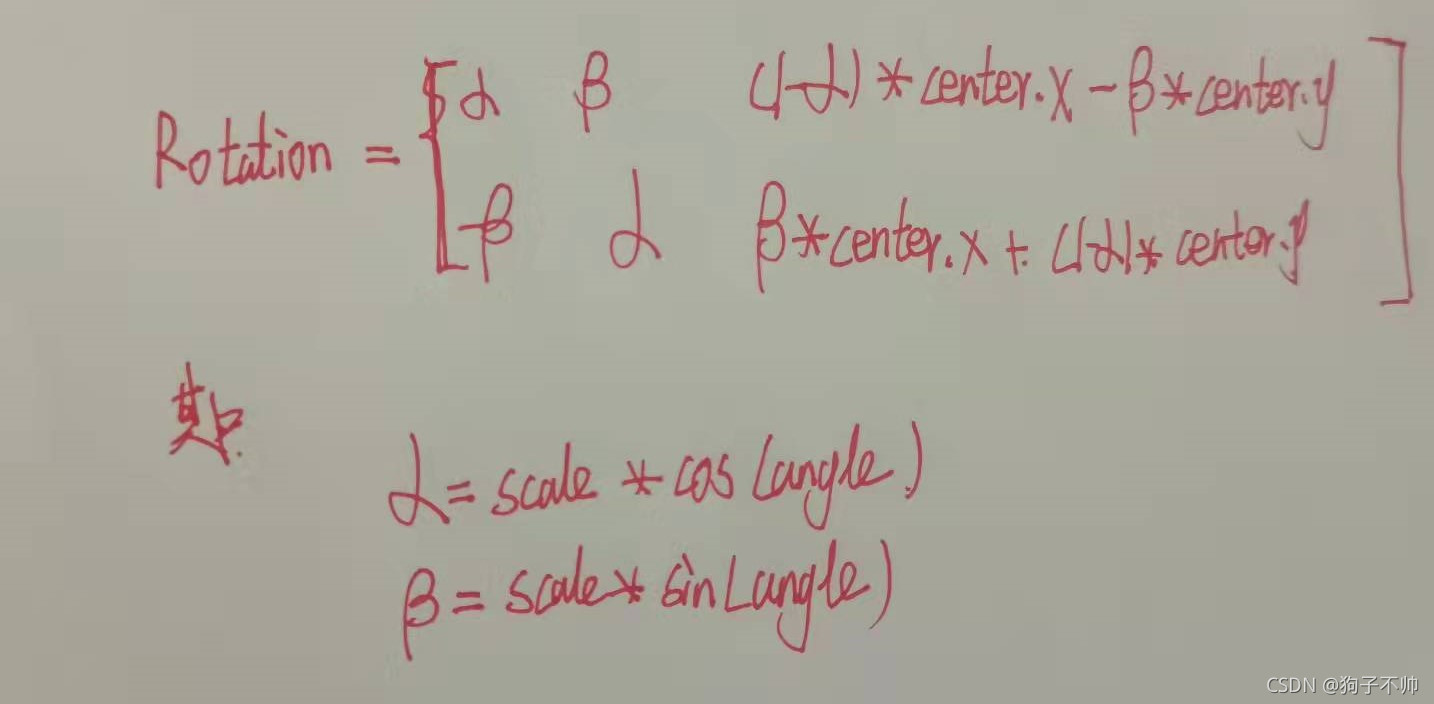 α β (1-α)*center.x-β*center.y
Rotation =
-β α β*center.x+(1-α)*center.y
其中
α=scale*cos(angle)
β=scale*sin(angle)
CSDN @狗子不帅